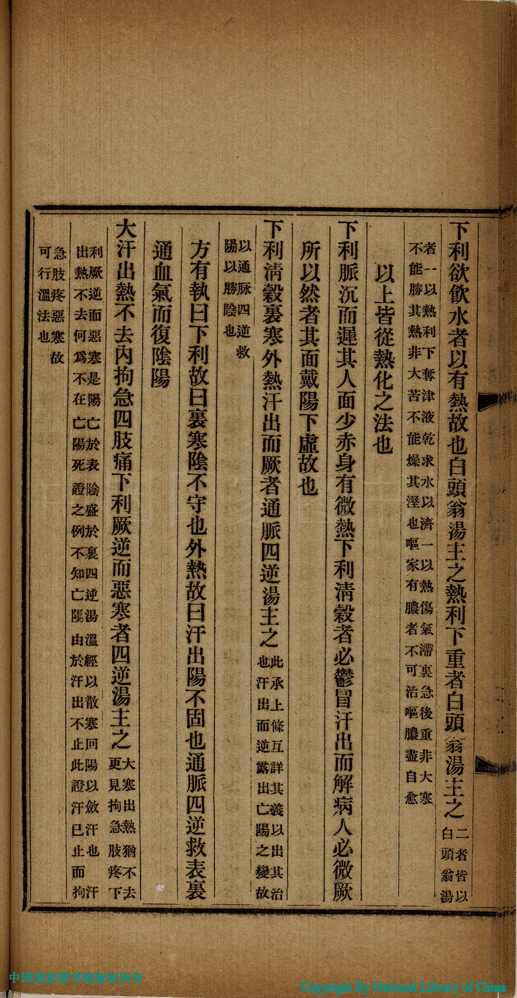 下利欲飲水者以有熱故也白頭翁湯主之熱利下重者白頭翁湯主之二者皆以白頭翁湯
者一以熱利下奪津液乾求水以濟一以熱傷氣滯裏急後重非大寒
不能勝其熱非大苦不能燥其溼也嘔家有膿者不可治嘔膿盡自愈
以上皆從熱化之法也
下利脈沉而遲其人面少赤身有微熱下利清穀者必鬱冒汗出而解病人必微厥
所以然者其面戴陽下虛故也
下利清穀裏寒外熱汗出而厥者通脈四逆湯主之此承上條互詳其義以出其治也汗出而逆露出亡陽之變故
以通脈四逆救
陽以勝陰也
方有執曰下利故曰裏寒陰不守也外熱故曰汗出陽不固也通脈四逆救表裏
通血氣而復陰陽
大汗出熱不去內拘急四肢痛下利厥逆而惡寒者四逆湯主之大寒出熱猶不去更見拘急肢疼下
利厥逆而惡寒是陽亡於表陰盛於裏四逆湯溫經以散寒回陽以斂汗也汗
出熱不去何爲不在亡陽死證之例不知亡陽由於汗出不止此證汗已止而拘
急肢疼惡寒故
可行溫法也
中国国家图书馆版权所有
Copyright By National Library of China